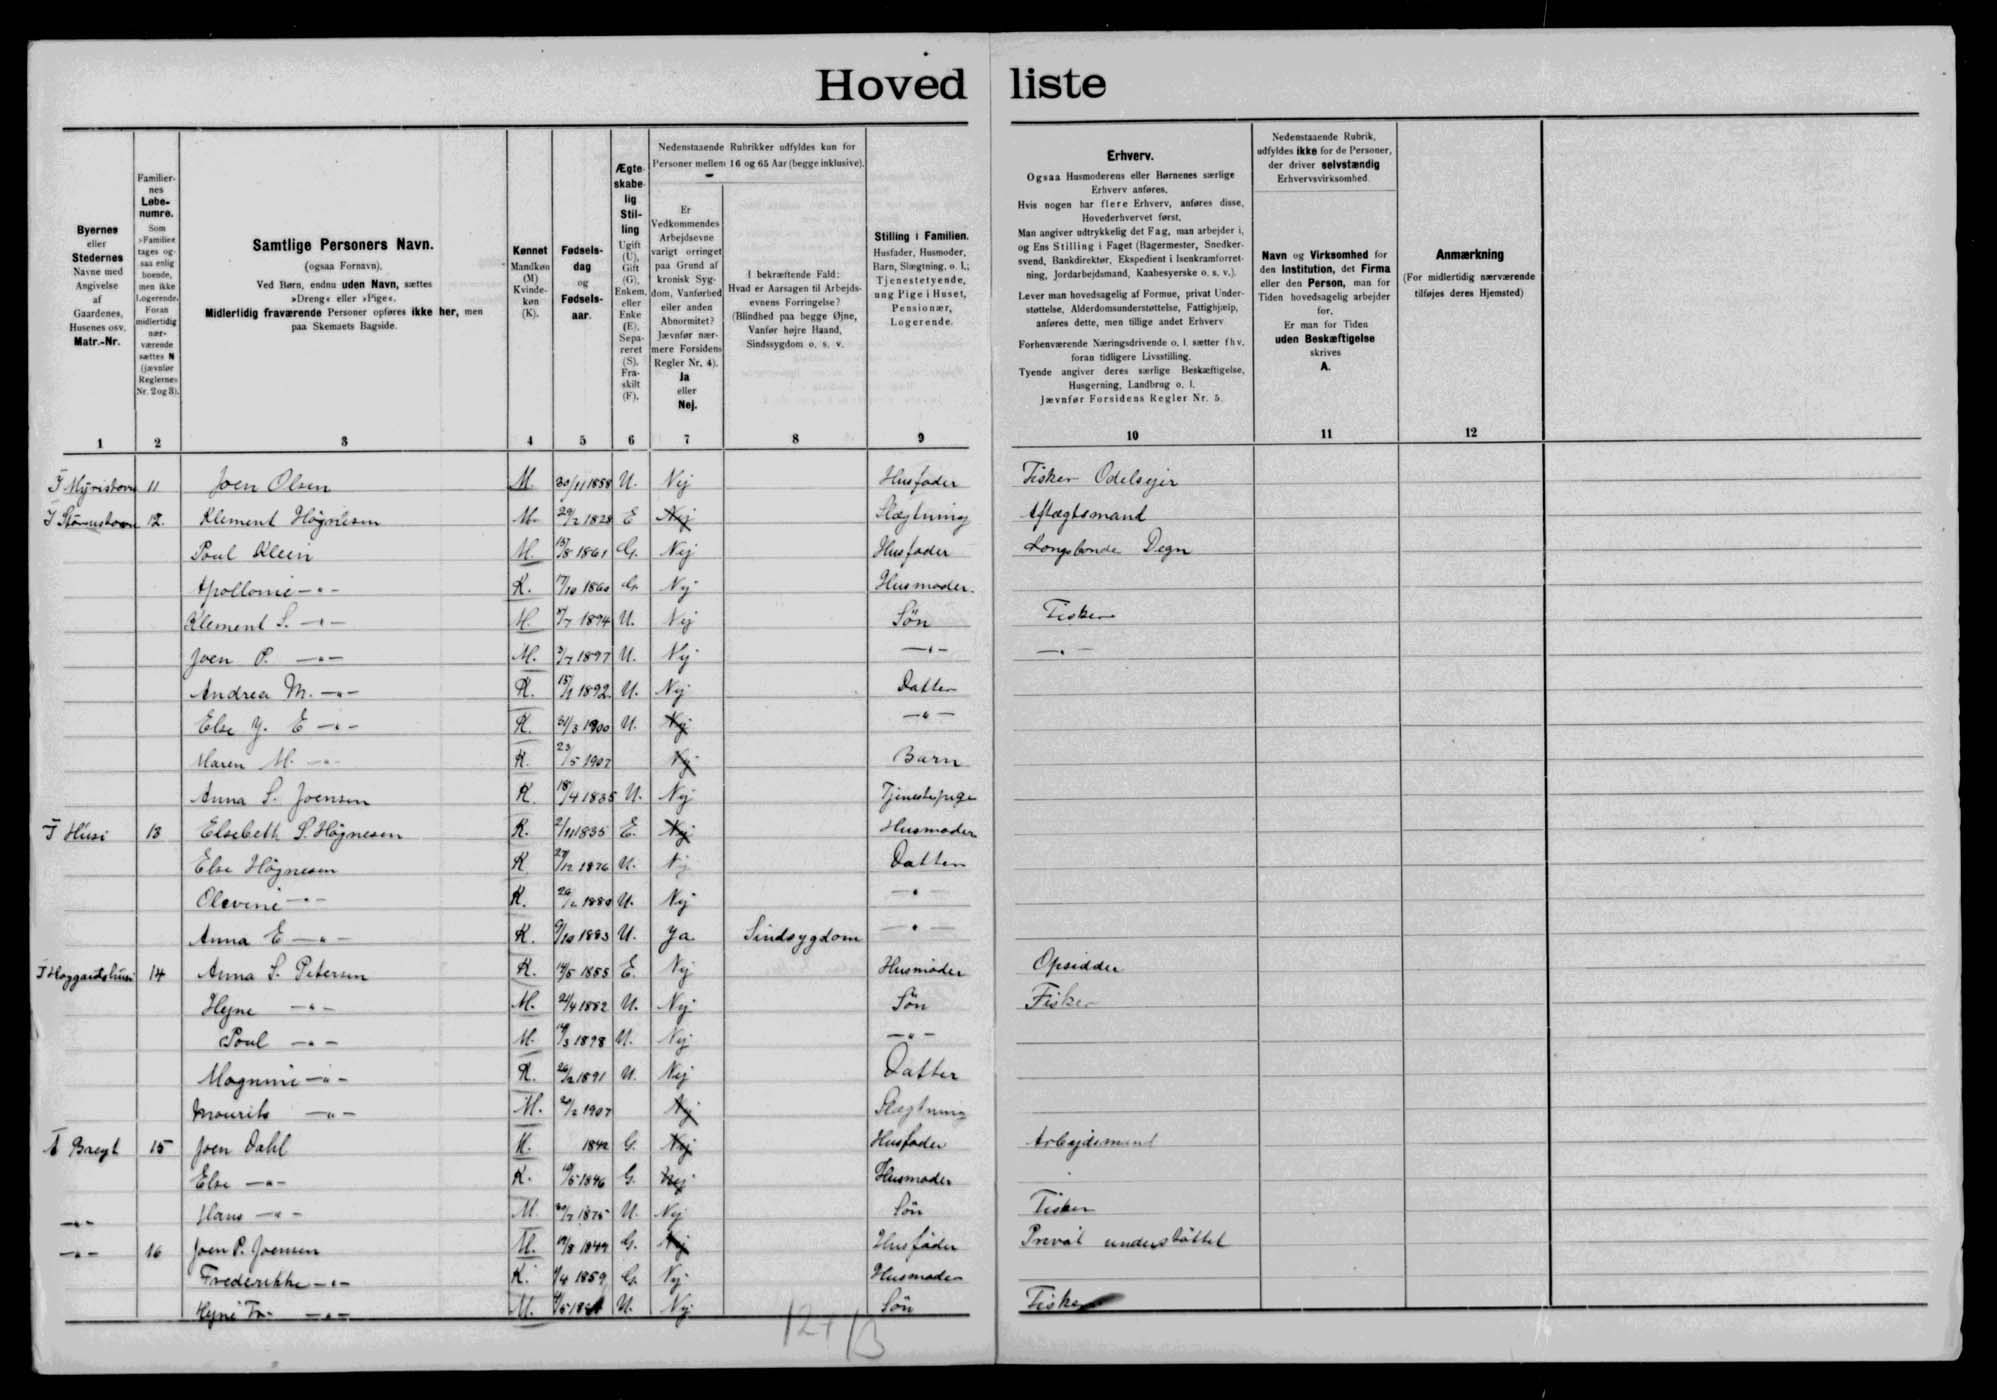 Hovedliste
Byernes eller Stedernes Navne med Angivelse af Gaardenes, Husenes osv. Matr.-Nr.
Familiernes Løbenumre. Som »Familie« tages ogsaa enlig boende, men ikke Logerende. Foran midlertidig nærværende sættes N (jævnfør Reglernes Nr. 2 og 3).
Samtlige Personers Navn.
(ogsaa Fornavn).
Ved Børn, endnu uden Navn, sættes »Dreng« eller »Pige«.
Midlertidig fraværende Personer opføres ikke her, men paa Skemaets Bagside.
Kønnet Mandkøn (M) Kvindekøn (K).
Fødselsdag og Fødselsaar.
Ægteskabelig Stilling Ugift (U), Gift (G), Enkem. eller Enke (E), Separeret (S), Fraskilt (F).
Nedenstaaende Rubrikker udfyldes kun for Personer mellem 16 og 65 Aar (begge inklusive).
Er Vedkommendes Arbejdsevne varigt forringet paa Grund af kronisk Sygdom, Vanførhed eller anden Abnormitet? Jævnfør nærmere Forsidens Regler Nr. 4). Ja eller Nej.
I bekræftende Fald: Hvad er Aarsagen til Arbejdsevnens Forringelse? (Blindhed paa begge Øjne, Vanfør højre Haand, Sindssygdom o. s. v.
Stilling i Familien. Husfader, Husmoder, Barn, Slægtning, o. l.; Tjenestetyende, ung Pige i Huset, Pensionær, Logerende.
Erhverv.
Ogsaa Husmoderens eller Børnenes særlige Erhverv anføres.
Hvis nogen har flere Erhverv, anføres disse, Hovederhvervet først.
Man angiver udtrykkelig det Fag, man arbejder i, og Ens Stilling i Faget (Bagermester, Snedkersvend, Bankdirektør, Ekspedient i Isenkramforretning, Jordarbejdsmand, Kaabesyerske o. s. v.).
Lever man hovedsagelig af Formue, privat Understøttelse, Alderdomsunderstøttelse, Fattighjælp, anføres dette, men tillige andet Erhverv.
Forhenværende Næringsdrivende o. l. sætter fhv. foran tidligere Livsstilling.
Tyende angiver deres særlige Beskæftigelse, Husgerning, Landbrug o. l.
Jævnfør Forsidens Regler Nr. 5.
Nedenstaaende Rubrik, udfyldes ikke for de Personer, der driver selvstændig Erhvervsvirksomhed.
Navn og Virksomhed for den Institution, det Firma eller den Person, man for Tiden hovedsagelig arbejder for.
Er man for Tiden uden Beskæftigelse skrives A.
Anmærkning
(For midlertidig nærværende tilføjes deres Hjemsted)
1 2 3 4 5 6 7 8 9 10 11 12
11 Joen Olsen M. 30/11 1858 U. Nej Husfader Fisker Odelsejer
12. Klement Högnesen M. 29/2 1828 E Nej Slægtning Aftægtsmand
Poul Klein M. 1861 G. Nej Husfader Kongsbonde Degn
Apollonie -"- K. 17/10 1860 G. Nej Husmoder.
Klement S. -"- M. 1894 U. Nej Sön Fisker
Joen P. -"- M. 3/7 1897 U. Nej -"- -"-
Andrea M. -"- K. 1892 U. Nej Datter
Else J. E -"- K. 31/3 1900 U. Nej -"-
Maren M. -"- K. 23/5 1907 Nej Barn
Anna S. Joensen K. 18/4 1835 U. Nej Tjenestepige
I Húsi 13 Elsebeth S. Högnesen K. 2/11 1835 E. Nej Husmoder
Else Högnesen K 27/12 1876 U. Nej Datter
Olevine -"- K. 1880 U. Nej -"-
Anna E -"- K. 9/10 1883 U. Ja Sindsygdom -"-
14 Anna S. Petersen K. 14/5 1855 E. Nej Husmoder Opsidder
Hejne -"- M. 21/4 1882 U. Nej Sön Fisker
Poul -"- M. 1898 U. Nej -"-
Magnine -"- K. 26/2 1891 U. Nej Datter
Mourits -"- M. 1907 Nej Slægtning
15 Joen Dahl M. 1842 G. Nej Husfader Arbejdsmand
Else -"- K. 1846 G. Nej Husmoder
-"- Hans -"- M. 1875 U. Nej Sön Fisker
-"- 16 Joen P. Joensen M. 19/8 1849 G. Nej Husfader Privat understöttet
Frederikke -"- K. 1859 G. Nej Husmoder
Hejne Fr. -"- M. U. Nej Sön Fisker
12+13